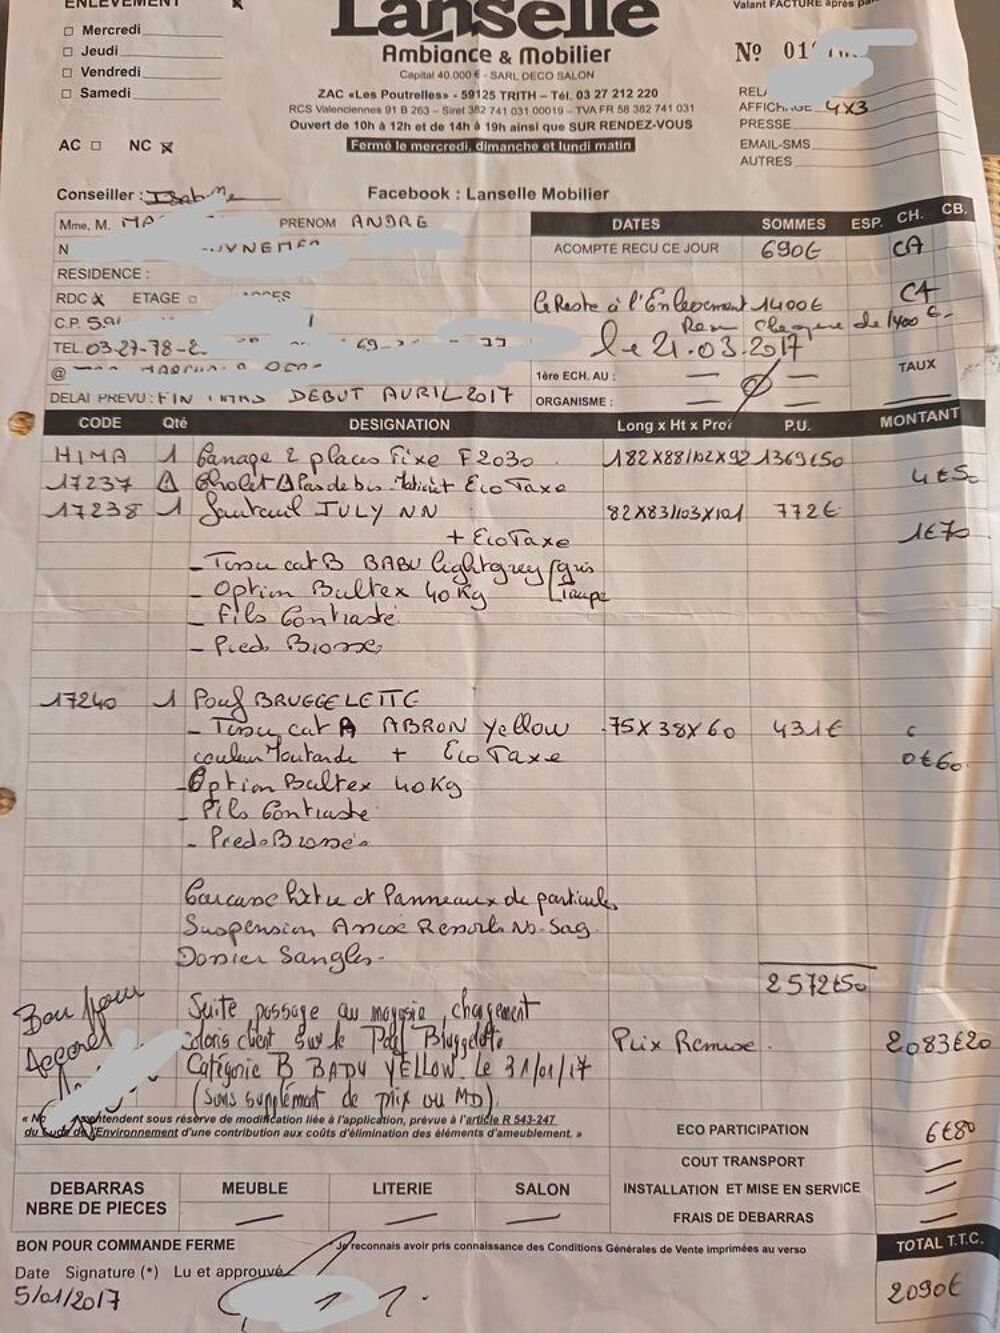 ENLEVEMENT
Mercredi
Jeudi
Vendredi
Samedi
AC NC
Lanselle
Ambiance & Mobilier
Capital 40.000 € - SARL DECO SALON
ZAC «Les Poutrelles» - 59125 TRITH – Tél. 03 27 212 220
RCS Valenciennes 91 B 263 – Siret 382 741 031 00019 – TVA FR 58 382 741 031
Ouvert de 10h à 12h et de 14h à 19h ainsi que SUR RENDEZ-VOUS
Fermé le mercredi, dimanche et lundi matin
Valant FACTURE après
N° 01
RELA
AFFICHAGE 4X3
PRESSE
EMAIL-SMS
AUTRES
Conseiller :
Facebook : Lanselle Mobilier
Mme, M. MA PRENOM ANDRE
N
RESIDENCE :
RDC X ETAGE
C.P. 59
TEL. 03-27-78-2 69
@
DELAI PREVU : FIN DEBUT AVRIL 2017
DATES SOMMES ESP. CH. CB.
ACOMPTE RECU CE JOUR 690€ CA
le Reste à l'Enlevement 1400€ CA
Rem Cheque de 1400€
le 21.03.2017
1ère ECH. AU : TAUX
ORGANISME :
CODE Qté DESIGNATION Long x Ht x Prof P.U. MONTANT
HIMA 1 Canape 2 places Fixe F2030 182X88/102X92 1369€50
17237 Cholet Pas de bis EcoTaxe 4€50
17238 1 Fauteuil JULY NN 82X83/103X101 772€
+ EcoTaxe 1€70
- Tissu cat B BABU lightgrey gris
- Option Bultex 40Kg taupe
- Fils Contrasté
- Pieds Brosses
17240 1 Pouf BRUGGELETTE
- Tissu cat A ABRON Yellow 75X38X60 431€
couleur Moutarde + EcoTaxe 0€60
- Option Bultex 40Kg
- Fils Contraste
- Pieds Brossés
Carcasse hêtre et Panneaux de particules
Suspension Assise Ressorts No-Sag
Dossier Sangles-
2572€50
Bon pour
Accord
Suite passage au magasin, changement
coloris client sur le Pouf Bruggelette
Catégorie B BABU YELLOW. le 31/01/17
(sans supplément de prix ou MD).
Prix Remise. 2083€20
« No entendent sous réserve de modification liée à l'application, prévue à l'article R 543-247
du Code de l'Environnement d'une contribution aux coûts d'élimination des éléments d'ameublement. »
ECO PARTICIPATION 6€80
COUT TRANSPORT
INSTALLATION ET MISE EN SERVICE
FRAIS DE DEBARRAS
DEBARRAS
NBRE DE PIECES
MEUBLE LITERIE SALON
BON POUR COMMANDE FERME
Je reconnais avoir pris connaissance des Conditions Générales de Vente imprimées au verso
TOTAL T.T.C.
Date Signature (*) Lu et approuvé
5/01/2017
2090€